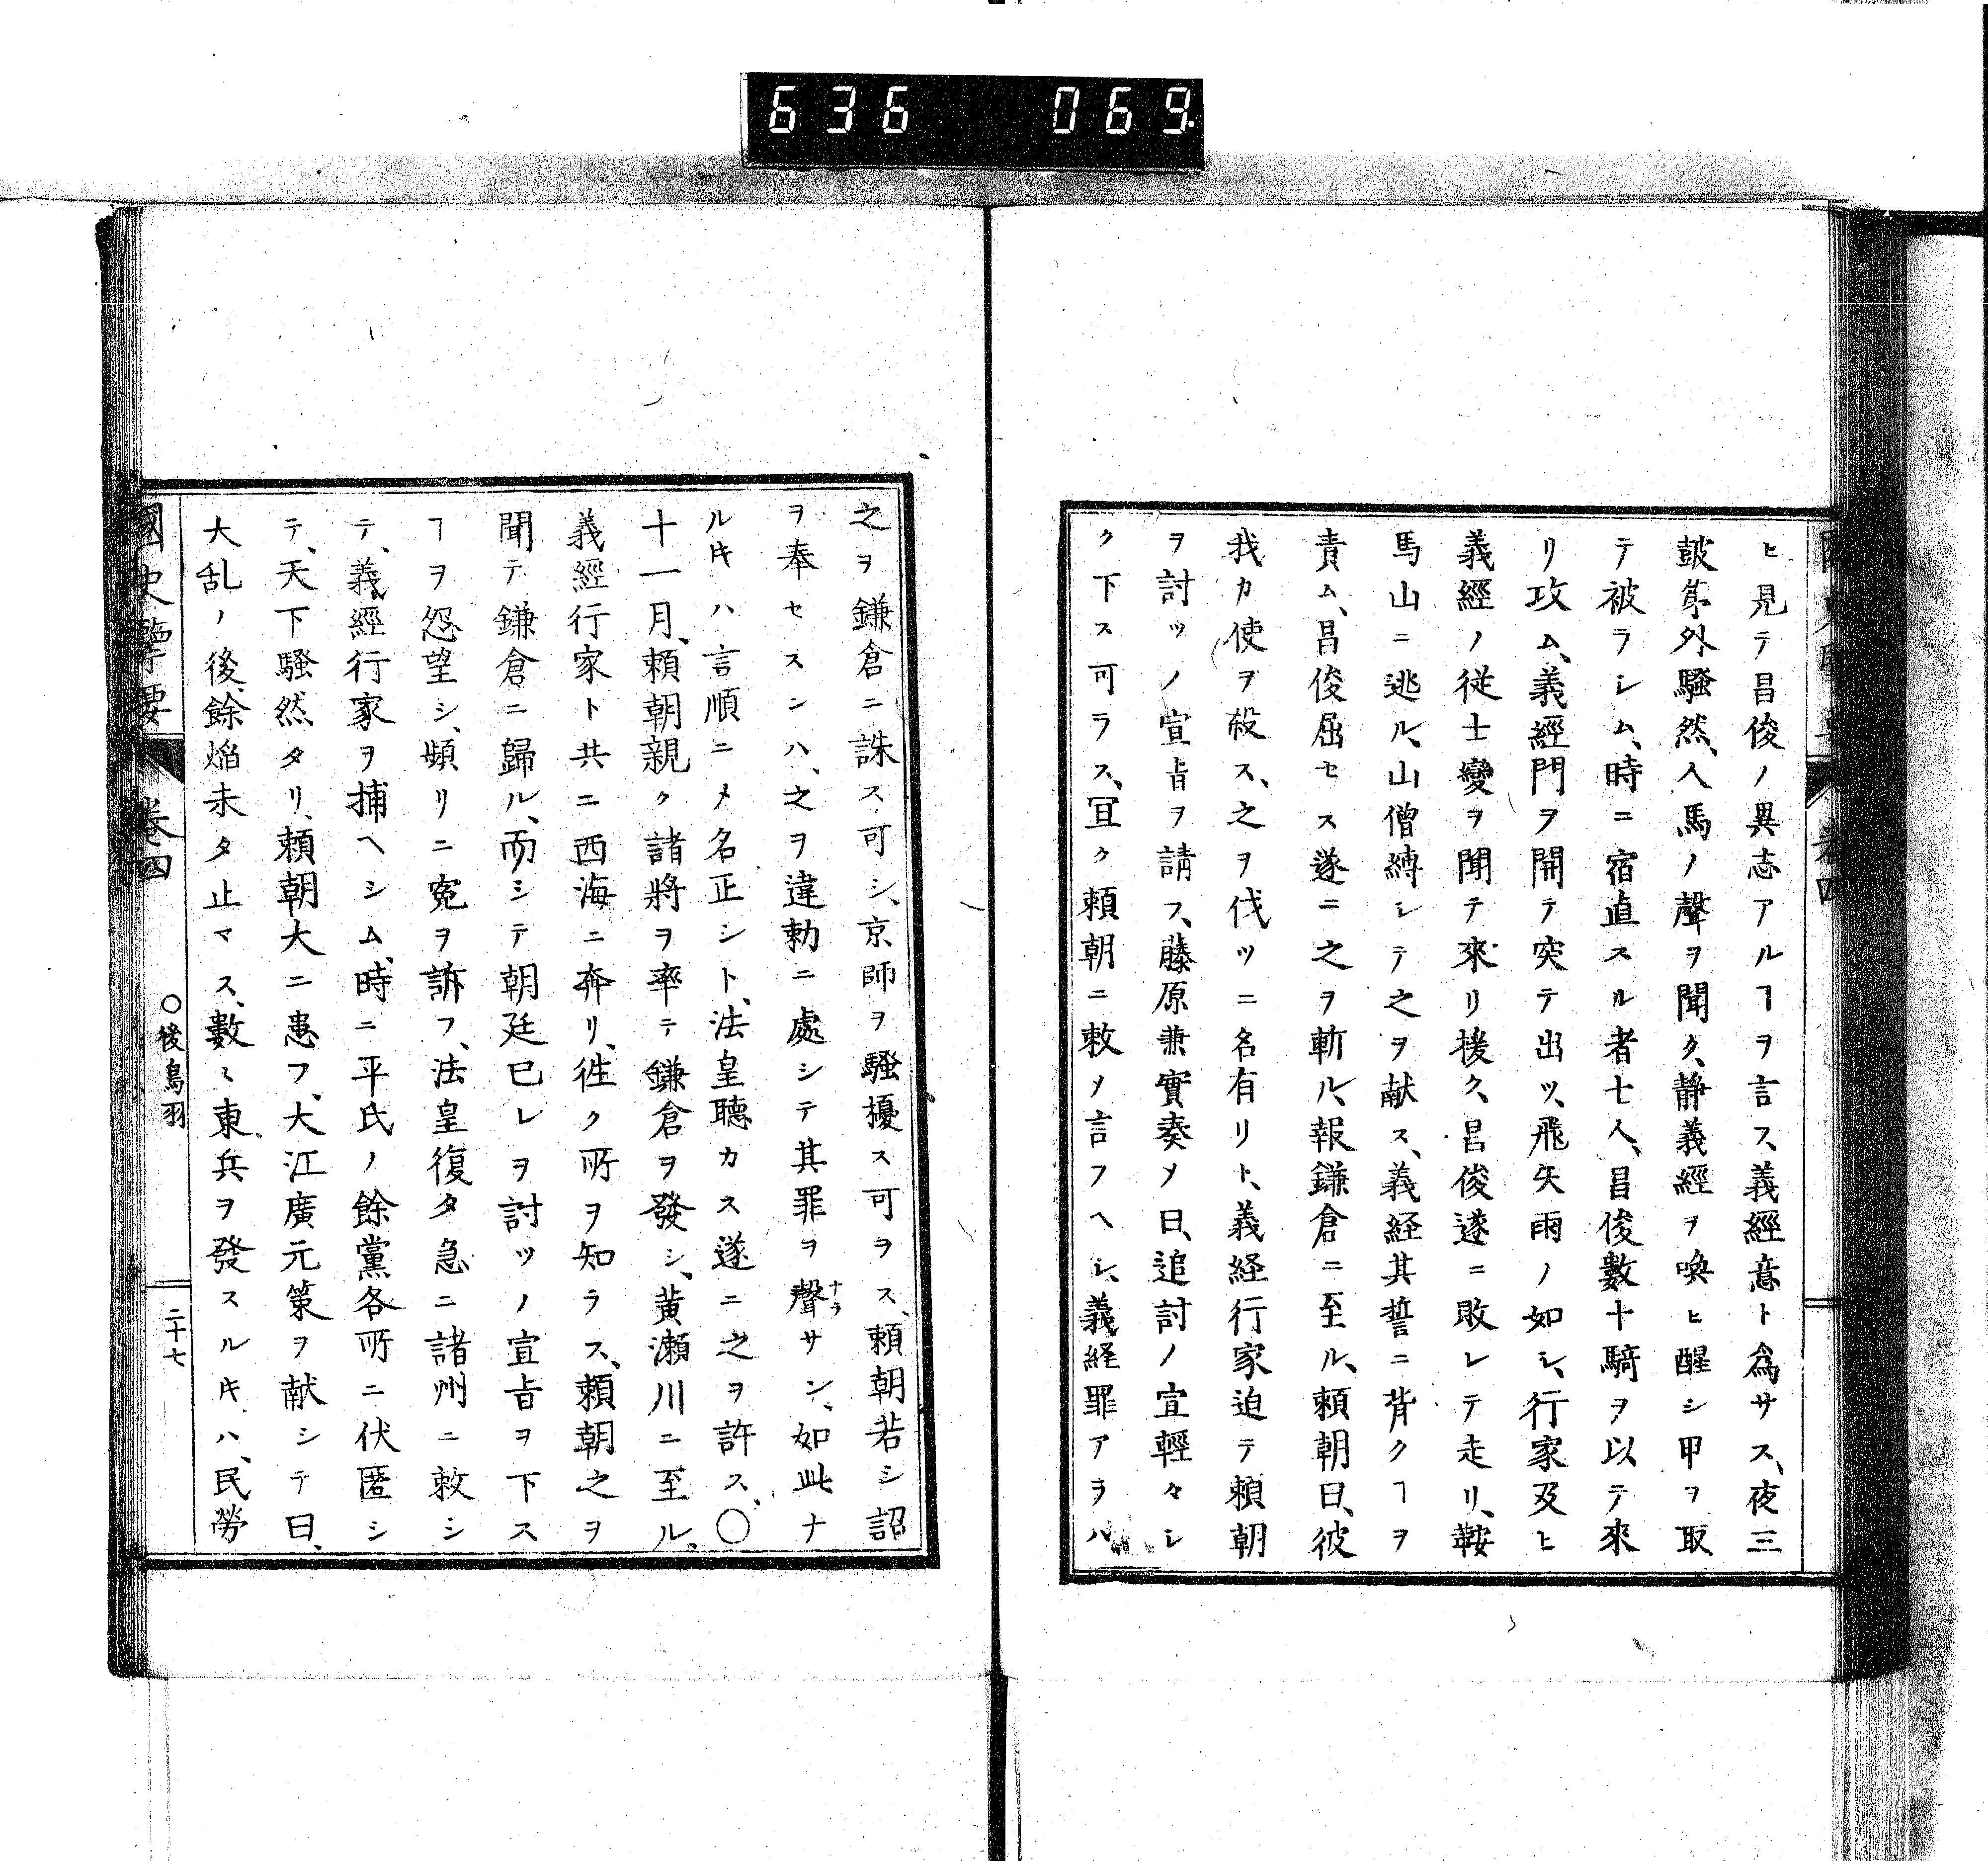 636 069
ヒ見テ昌俊ノ異志アルヿヲ言ス、義經意ト爲サス、夜三
皷第外騒然、人馬ノ聲ヲ聞ク、静義經ヲ喚ヒ醒シ甲ヲ取
テ被ラシム、時ニ宿直スル者七人、昌俊數十騎ヲ以テ來
リ攻ム、義經門ヲ開テ突テ出ツ、飛矢雨ノ如シ、行家及ヒ
義經ノ従士變ヲ聞テ來リ援ク、昌俊遂ニ敗レテ走リ、鞍
馬山ニ逃ル、山僧縛シテ之ヲ献ス、義経其誓ニ背クヿヲ
責ム、昌俊屈セス遂ニ之ヲ斬ル、報鎌倉ニ至ル、頼朝曰、彼
我カ使ヲ殺ス、之ヲ伐ツニ名有リト、義経行家迫テ頼朝
ヲ討ツノ宣旨ヲ請フ、藤原兼實奏メ曰、追討ノ宣輕々シ
ク下ス可ラス、宜ク頼朝ニ敕メ言フヘシ、義経罪アラハ
之ヲ鎌倉ニ誅ス可シ、京師ヲ騒擾ス可ラス、頼朝若シ詔
ヲ奉セスンハ、之ヲ違勅ニ處シテ其罪ヲ聲サン、如此ナ
ナラ
ルキハ言順ニメ名正シト、法皇聽カス遂ニ之ヲ許ス、〇
十一月、頼朝親ク諸將ヲ率テ鎌倉ヲ發シ、黄瀬川ニ至ル、
義經行家ト共ニ西海ニ奔リ、徃ク所ヲ知ラス、頼朝之ヲ
聞テ鎌倉ニ歸ル、而シテ朝廷已レヲ討ツノ宣旨ヲ下ス
ヿヲ怨望シ、頻リニ寃ヲ訴フ、法皇復タ急ニ諸州ニ敕シ
テ、義經行家ヲ捕ヘシム、時ニ平氏ノ餘黨各所ニ伏匿シ
テ、天下騒然タリ、頼朝大ニ患フ、大江廣元策ヲ献シテ曰、
大乱ノ後、餘焔未タ止マス、數々東兵ヲ發スルキハ、民勞
國史擥要 卷四 〇後鳥羽 二十七